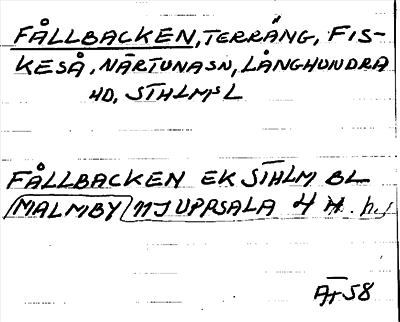 FÅLLBACKEN, TERRÄNG, FIS-
KESÅ, NÄRTUNA SN, LÅNGHUNDRA
HD, STHLMS L
FÅLLBACKEN EK STHLM BL
(MALMBY) 11J UPPSALA 4
ÄT 58